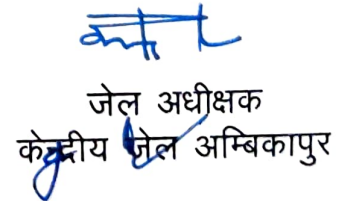 जेल अधीक्षक
केन्द्रीय जेल अम्बिकापुर